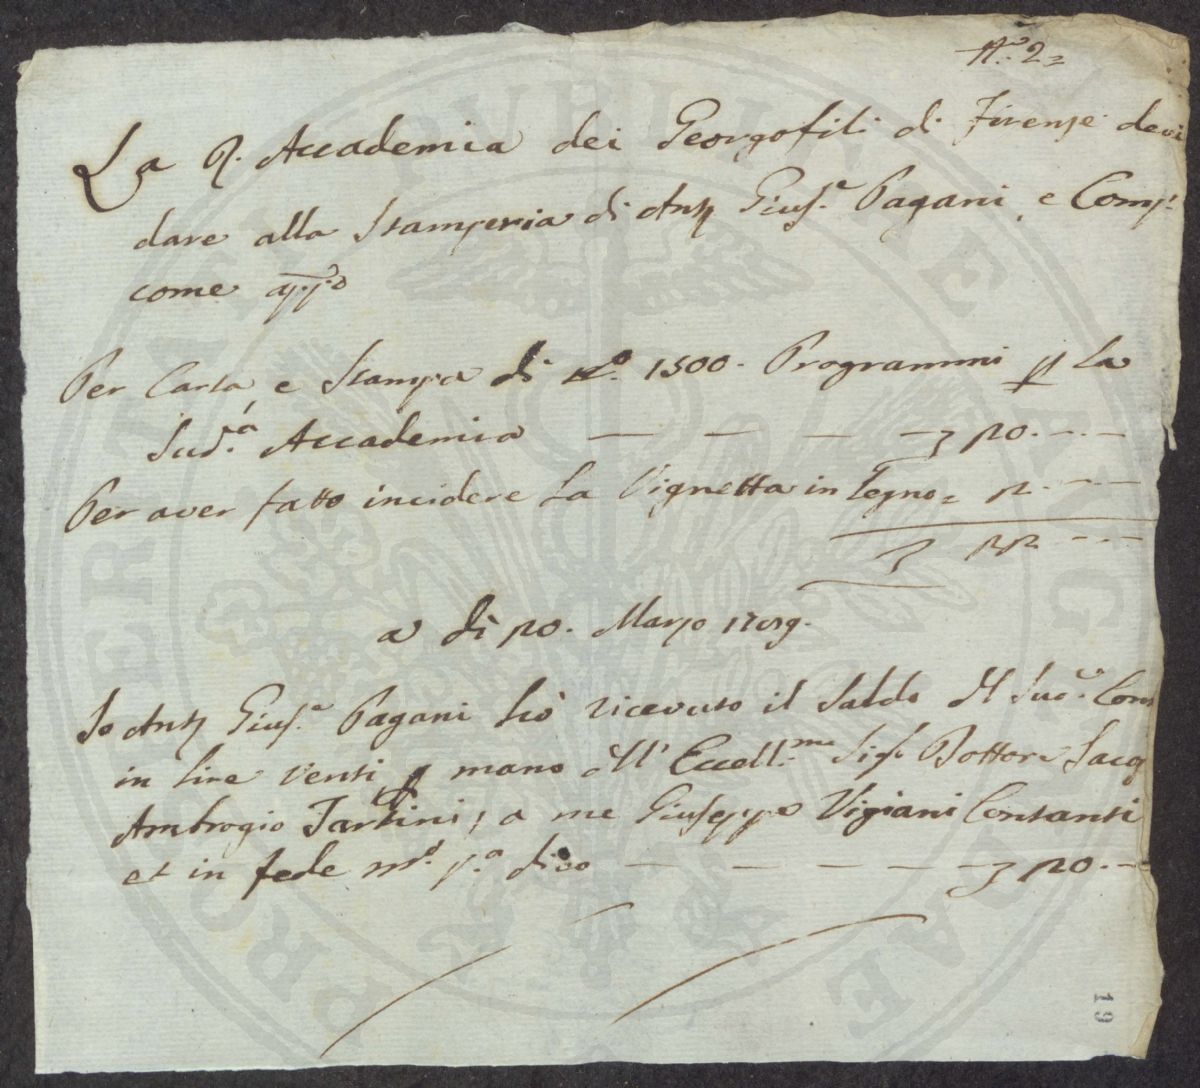 N.º 2=
La R. Accademia dei Georgofili di Firenze deve
dare alla Stamperia di Ant. Gius.e Pagani, e Comp.
come app.o
Per Carta, e Stampa di N.º 1500. Programmi p la
Sud.a Accademia — — — — 20.-.-
Per aver fatto incidere la Vignetta in Legno= 2.-.-
22.-.-
a dì 20. Marzo 1789.
Io Ant. Gius.e Pagani hò ricevuto il Saldo del Sud.o Con
in lire venti p mano dell' Eccell.mo Sig. Dottore Jaco
Ambrogio Tartini, a me Giuseppe Vigiani Contanti
et in fede m.o p.a dico — — — — 20.-.-
19
PROSPERITATI PUBLICAE AUGENDAE